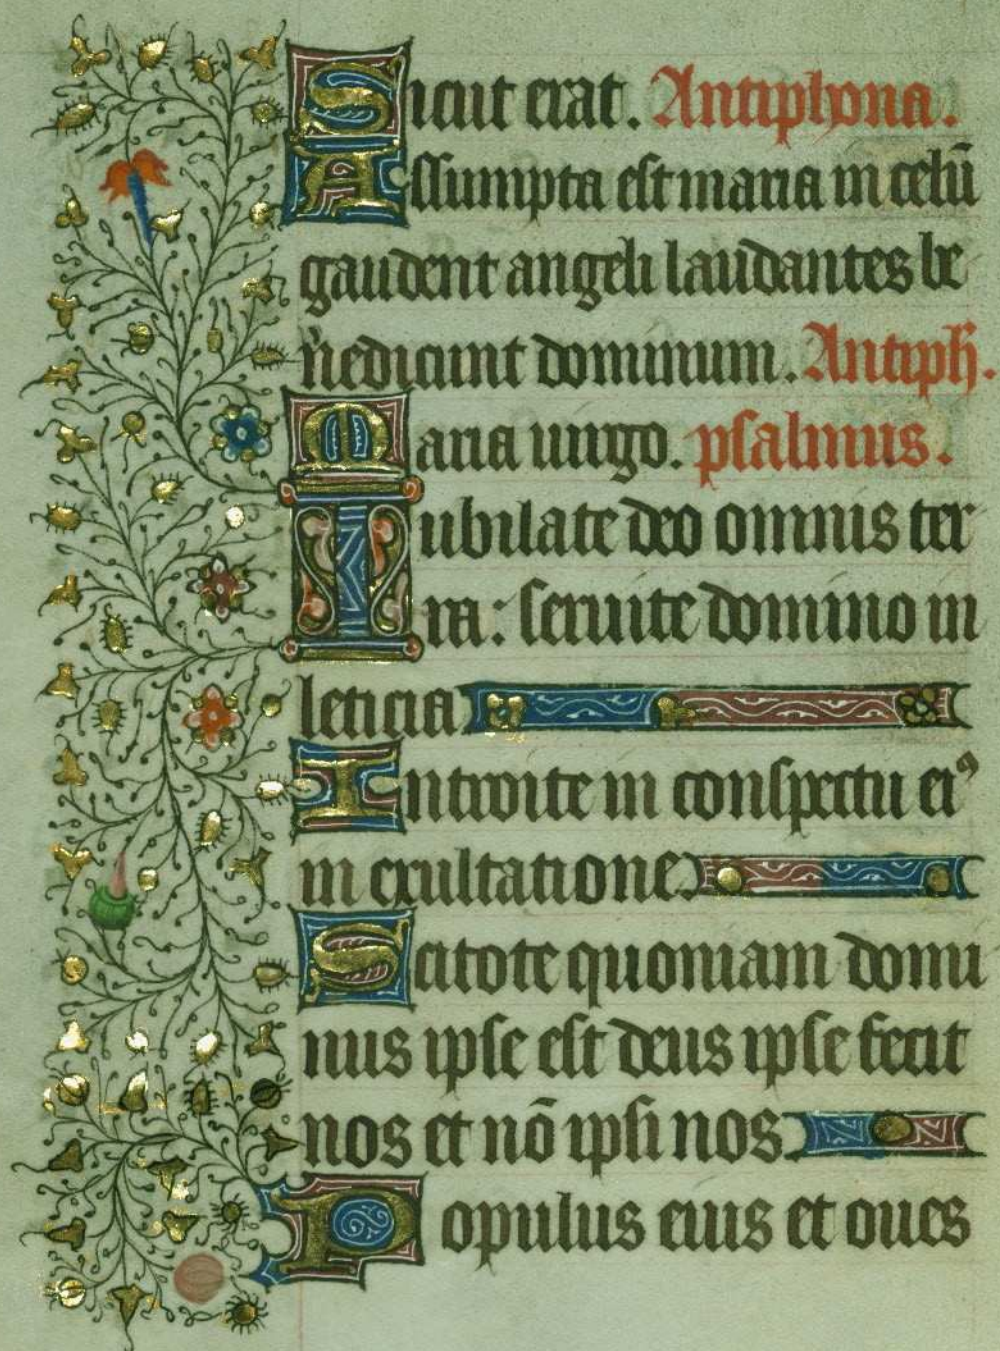 Sicut erat. Antiphona.
Assumpta est maria in celū
gaudent angeli laudantes be
nedicunt dominum. Antiph̄.
Maria uirgo. psalmus.
Iubilate deo omnis ter
ra: seruite domino in
leticia
Introite in conspectu eiꝰ
in exultatione
Scitote quoniam domi
nus ipse est deus ipse fecit
nos et nō ipsi nos
Populus eius et oues